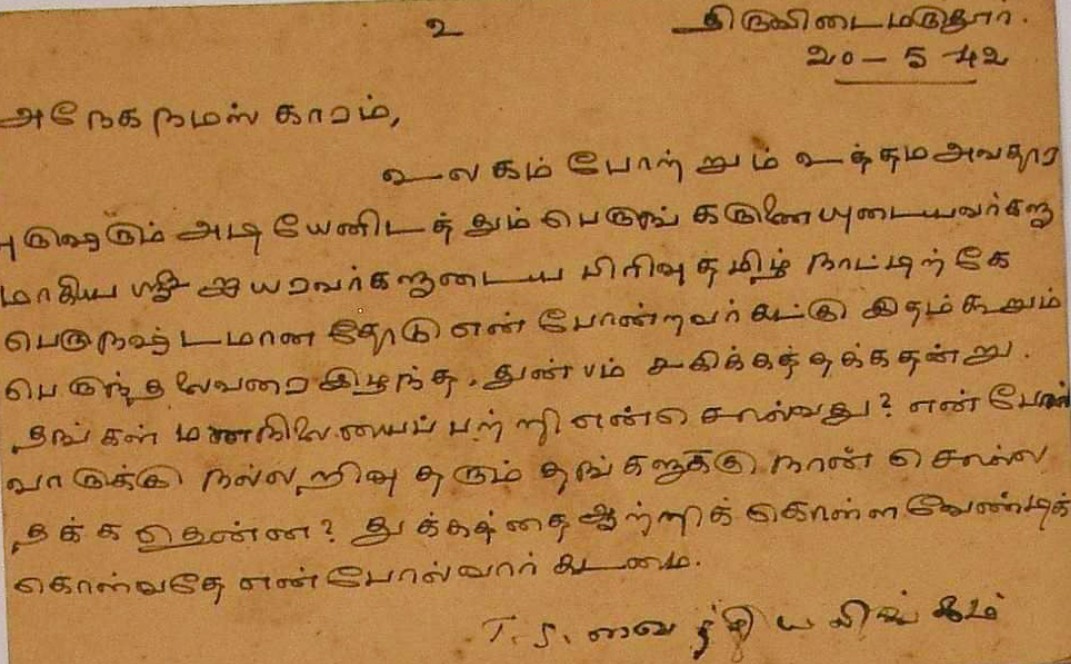 உ
திருவிடைமருதூர்.
20 - 5 - 42
அநேக நமஸ்காரம்,
உலகம் போற்றும் உத்தம அவதார
புருஷரும் அடியேனிடத்தும் பெருங் கருணையுடையவர்களு
மாகிய ஸ்ரீ ஐயரவர்களுடைய பிரிவு தமிழ் நாட்டிற்கே
பெருநஷ்டமானதோடு என் போன்றவர்கட்கு இதம்கூறும்
பெருந்தலைவரை இழந்த துன்பம் சகிக்கத்தக்கதன்று.
தங்கள் மனநிலையைப் பற்றி என் சொல்வது? என் போல்
வாருக்கு நல்லறிவு தரும் தங்களுக்கு நான் சொல்ல
தக்கதென்ன? துக்கத்தை ஆற்றிக் கொள்ள வேண்டிக்
கொள்வதே என் போல்வார் கடமை.
T. S. வைத்தியலிங்கம்